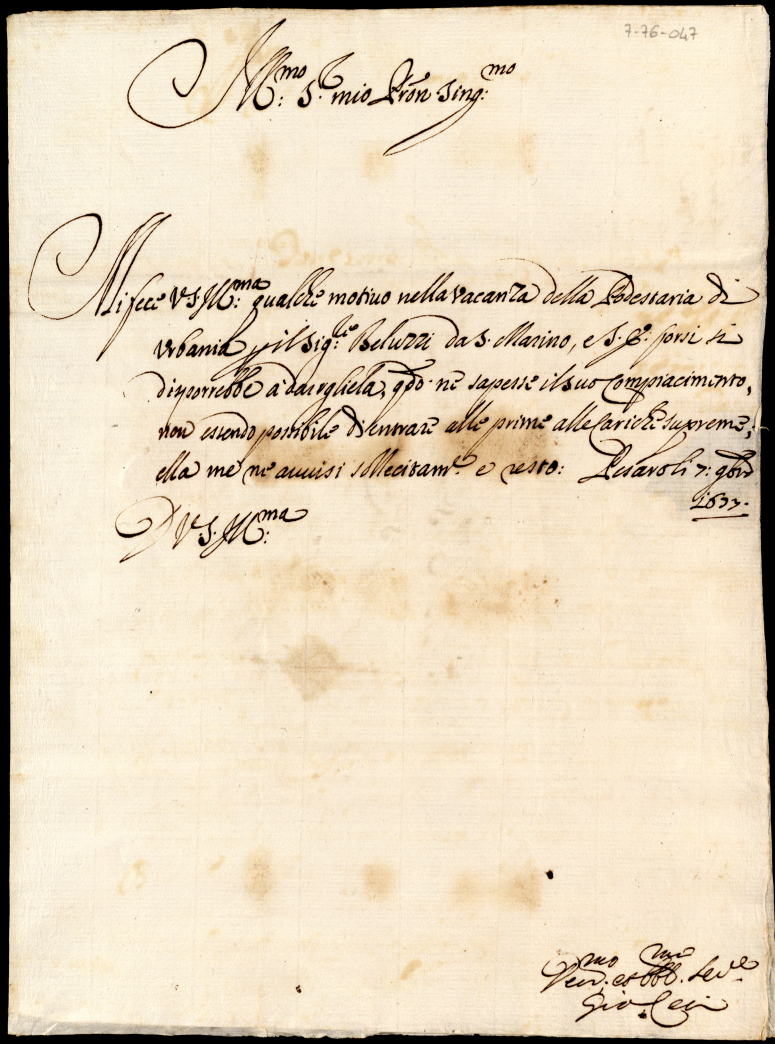 7-76-047
Ill:mo S.r mio Pron Sing:mo
Mi fece V S Ill:ma qualche motivo nella vacanza della Podestaria di
Urbania p il Sig:re Beluzzi da S. Marino, e S. E. forsi si
disporrebbe à dargliela, qdo ne sapesse il suo Compiacimento,
non essendo possibile di entrare alle prime alle Cariche supreme;
ella me ne avvisi sollecitam.te e resto: Pesaro li 7: 9bre
1677.
D V. S. Ill:ma
Dev:mo et Obbl:mo Ser.re
Gio